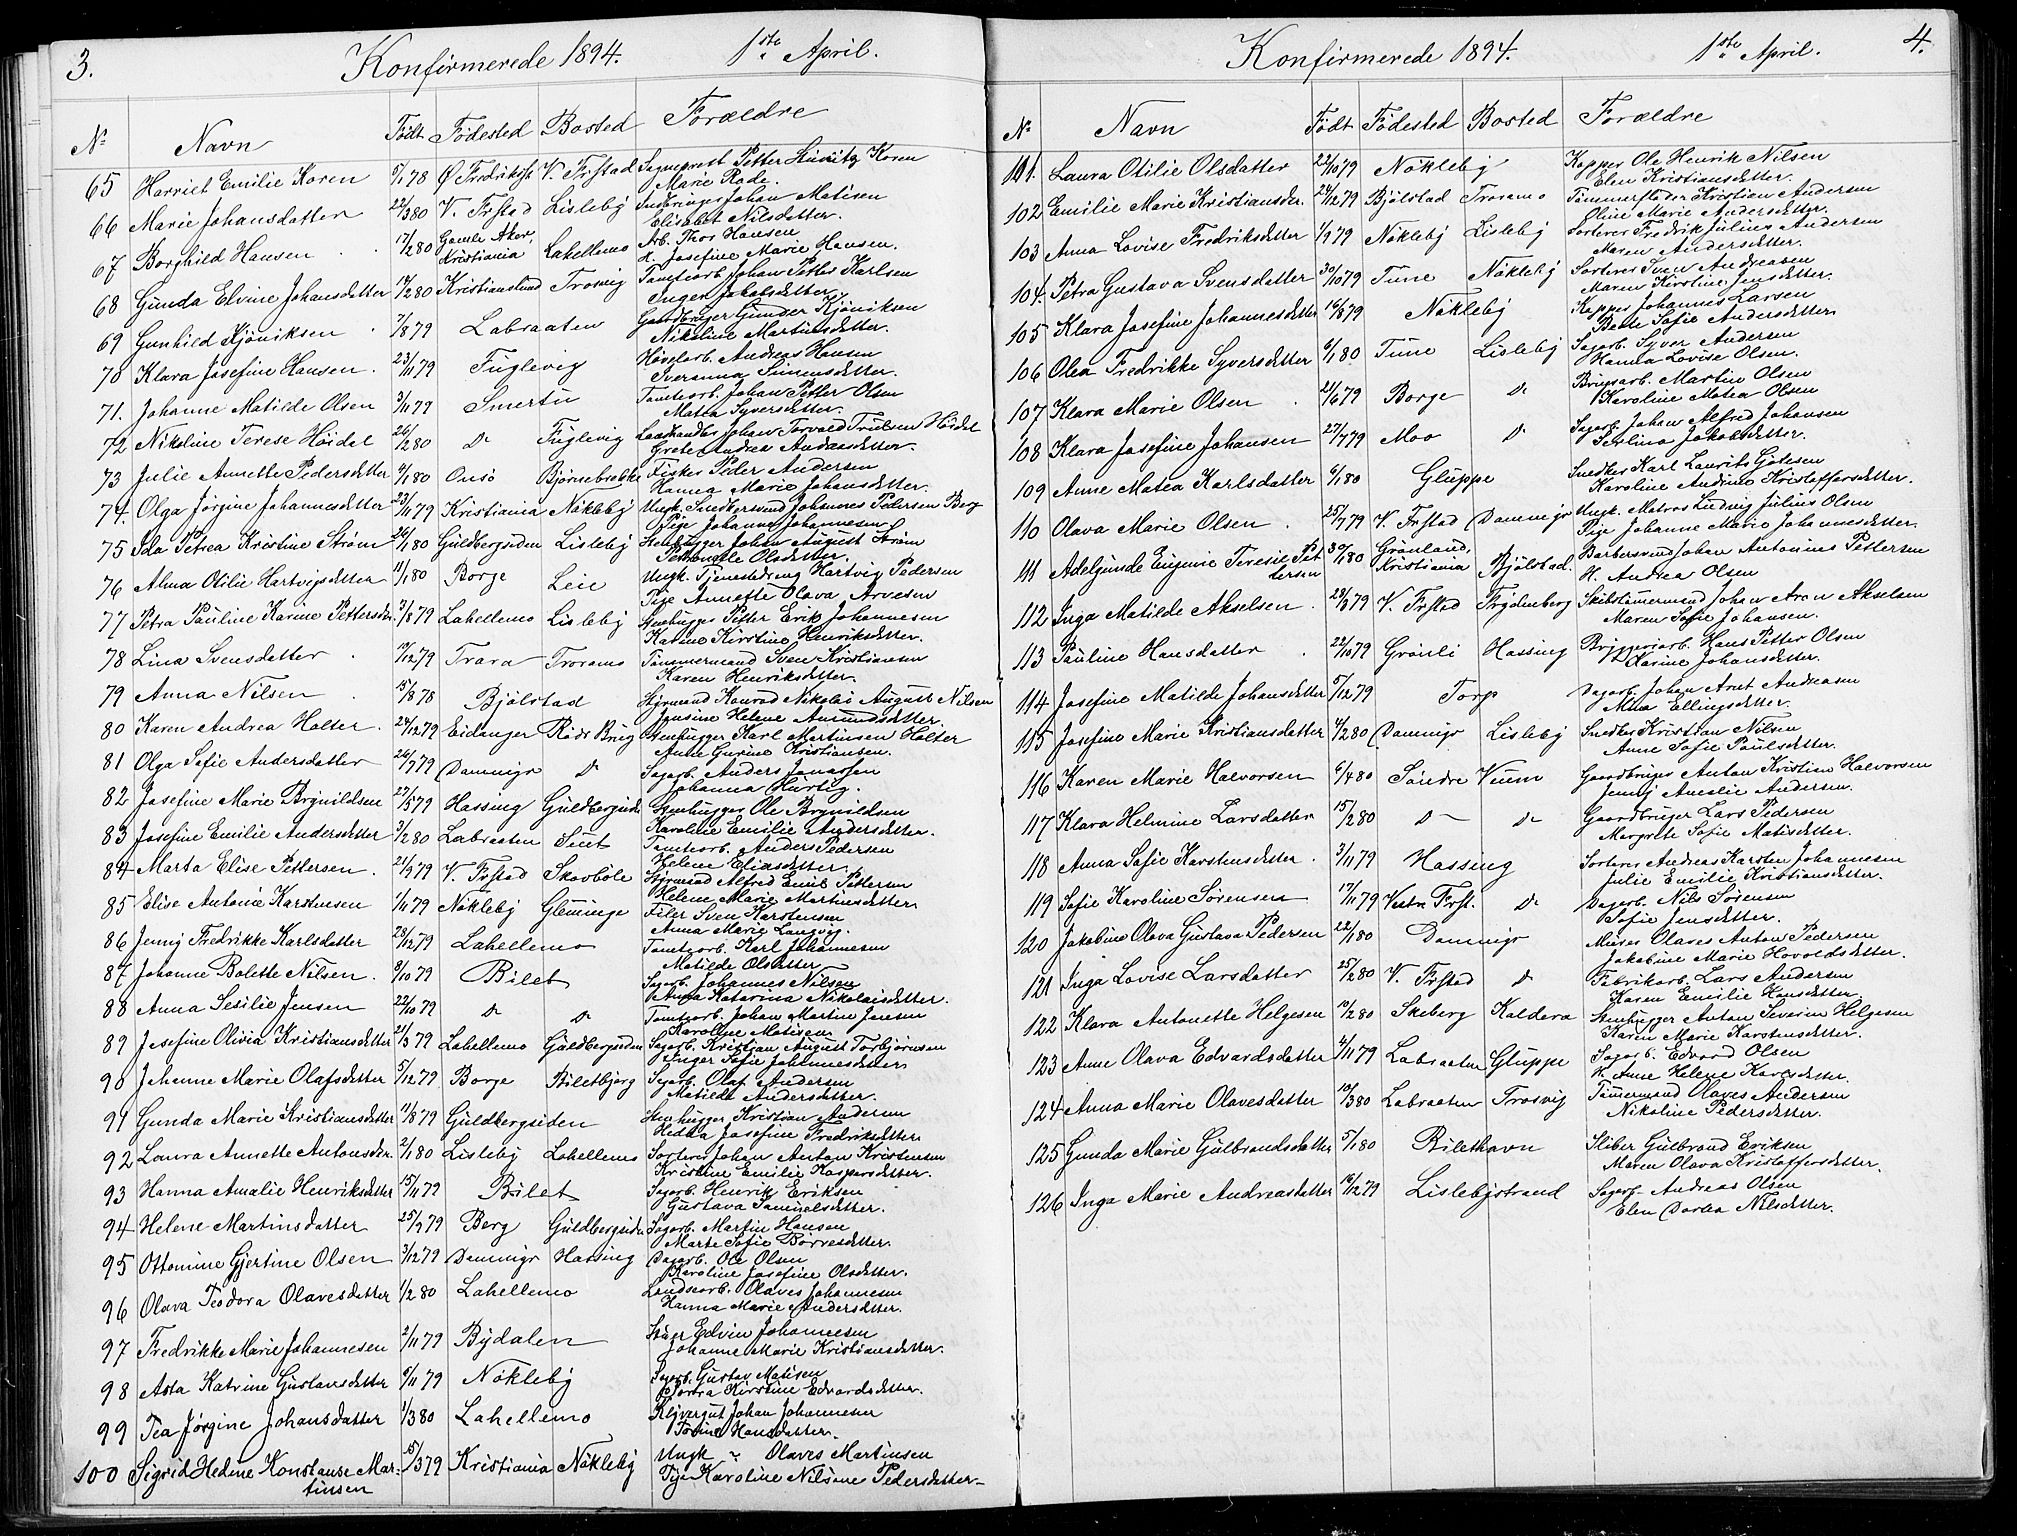 3. Konfirmerede 1894. 1ste April.
No Navn Født Fødested Bosted Forældre
65 Harriet Emilie Koren 5/1 78 Ø. Fredrikst. V. Frstad Sogneprest Petter Koren
Marie Rode.
66 Marie Johansdatter 22/3 80 V. Frstad Lisleby Johan Matisen
Elisabet Nilsdatter.
67 Borghild Hansen 17/2 80 Gamle Aker, Kristiania Lahellemo Arb. Thor Hansen
H. Josefine Marie Hansen.
68 Gunda Elvine Johansdatter 14/2 80 Kristianslund Trosvig Tomtearb. Johan Petter Karlsen
Inger Jakobsdatter.
69 Gunhild Kjöniksen 7/8 79 Labraaten Gaardbruger Gunder Kjöniksen
Nikoline Martinsdatter.
70 Klara Josefine Hansen 23/11 79 Fuglevig Høvelarb. Andreas Hansen
Sveranna Simensdatter.
71. Johanne Matilde Olsen 3/11 79 Smertu Tomtearb. Johan Petter Olsen
Matea Syversdatter.
72 Nikoline Terese Høidel 26/2 80 Do Fuglevig Landhandler Johan Torvald Trulsen Høidel
Grete Andrea Andreasdatter.
73 Julie Annette Pedersdatter 4/1 80 Onsö Bjørnebrække Fisker Peder Andersen
Hanna Marie Johansdatter.
74. Olga Jørgine Johannesdatter 23/11 79 Kristiania Nökleby Ungk. Snedkersvend Johannes Pedersen Berg
Pige Johanne Johannesen
75 Ida Petrea Kristine Strøm 26/1 80 Guldbergsiden Lisleby Stenhugger Johan August Strøm
Petronelle Olsdatter.
76 Alma Otilie Hartvigsdatter 11/1 80 Borge Leie Ungk. Tjenestedreng Hartvig Pedersen
Pige Annette Olava Arvesen
77 Petra Pauline Karine Pettersdtr. 3/8 79 Lahellemo Lisleby Stenhugger Petter Erik Johannesen
Katrine Kirstine Henriksdatter.
78 Lina Svensdatter 17/12 79 Trara Troramo Tømmermand Sven Kristiansen
Karen Henriksdatter.
79 Anna Nilsen 15/8 78 Bjölstad Styrmand Konrad Nikolai August Nilsen
Jensine Helene Amundsdatter.
80 Karen Andrea Holter 24/12 79 Eidanger Röds Brug Stenhugger Karl Martinsen Holter
Anne Gurine Kristiansen.
81 Olga Sofie Andersdatter 26/7 79 Damnigr Do Sagarb. Anders Jonassen
Johanna Hurtig.
82 Josefine Marie Brynildsen 27/5 79 Hassing Guldbergsiden Stenhugger Ole Brynildsen
Karoline Emilie Andersdatter.
83 Josefine Emilie Andersdatter 3/2 80 Labraaten Sut Tomtearb. Anders Pedersen
Helene Eliasdatter.
84 Marta Elise Pettersen 21/9 79 V. Frstad Skovbøle Styrmand Alfred Emil Pettersen
Helene Marie Martinsdatter
85 Elise Antonie Karstensen 1/11 79 Nökleby Glemminge Filer Sven Karstensen
Anna Marie Langvig.
86 Jenny Fredrikke Karlsdatter 28/12 79 Lahellemo Tomtearb. Karl Johannesen
Matilde Olsdatter
87 Johanne Bolette Nilsen 8/10 79 Bilet Sagarb. Johannes Nilsen
Anna Katarina Nikolaisdatter.
88 Anna Sesilie Jensen 22/10 79 Do Do Tomtearb. Johan Martin Jensen
Karoline Matisen
89 Josefine Olivia Kristiansdatter 21/3 79 Lahellemo Guldbergsiden Sagarb. Kristian August Torbjørnsen
Inger Sofie Johannesdatter
90 Johanne Marie Olafsdatter 5/12 79 Borge Biletbjerg Sagarb. Olaf Andersen
Matilde Andersdatter.
91 Gunda Marie Kristiansdatter 11/8 79 Guldbergsiden Stenhugger Kristian Andersen
Hedda Josefine Fredriksdatter
92 Laura Annette Antonsdtr. 2/1 80 Lisleby Lahellemo Sorterer Johan Anton Kristensen
Kristine Emilie Kaspersdatter.
93 Hanna Amalie Henriksdatter 15/11 79 Bilet Sagarb. Henrik Eriksen
Gustava Samuelsdatter.
94 Helene Martinsdatter 25/9 79 Berg Guldbergsiden Sagarb. Martin Hansen
Marte Sofie Børresdatter.
95 Ottomine Gjertine Olsen 3/12 79 Damnigr Hassing Dagarb. Ole Olsen
Karoline Josefine Olsdatter.
96 Olava Teodora Olavesdatter 1/2 80 Lahellemo Landsearb. Olaves Johannesen
Hanna Marie Andersdatter.
97 Fredrikke Marie Johannesen 2/11 79 Bydalen Edvin Johannesen
Johanne Marie Kristiansdatter.
98 Asta Katrine Gustavsdatter 6/11 79 Nökleby Sagarb. Gustav Matisen
Kirstine Edvardsdatter.
99 Tea Jørgine Johansdatter 1/3 80 Lahellemo Johan Johannesen
Torine Hansdatter.
100 Sigrid Hedine Konstanse Martinsen 15/3 79 Kristiania Nökleby Ungk ~ Olaves Martinsen
Pige Karoline Nilsine Pedersdatter
Konfirmerede 1894. 1ste April. 4.
No Navn Født Fødested Bosted Forældre
101. Laura Otilie Olsdatter 22/10 79 Nökleby Kopper Ole Henrik Nilsen
Elen Kristiansdatter.
102 Emilie Marie Kristiansdr. 24/12 79 Bjölstad Troramo Tømmerfløder Kristian Andersen
Oline Marie Andersdatter.
103 Anna Lovise Fredriksdatter 1/9 79 Nökleby Lisleby Sorterer Fredrik Julius Andersen
Maren Andersdatter.
104. Petra Gustava Svensdatter 30/10 79 Tune Nökleby Sorterer Sven Andreasen
Maren Kirstine Jensdatter.
105 Klara Josefine Johannesdatter 16/8 79 Nökleby Kopper Johannes Larsen
Berte Sofie Andersdatter
106 Olea Fredrikke Syversdatter 6/1 80 Tune Lisleby Sagarb. Syver Andersen
Hanna Lovise Olsen.
107 Klara Marie Olsen 21/6 79 Borge Do Brugsarb. Martin Olsen
Karoline Matea Olsen
108 Klara Josefine Johansen 27/7 79 Moo Do Sagarb. Johan Alfred Johansen
Severina Jakobsdatter.
109 Anne Matea Karlsdatter 6/1 80 Gluppe Snedker Karl Laurits Gjötesen
Karoline Andine Kristoffersdatter.
110 Olava Marie Olsen 25/7 79 V. Frstad Damnigr Ungk. Matros Ludvig Julius Olsen
Pige Johanne Marie Johannesdatter.
111 Adelgunde Eugenie Teresie Pettersen 30/1 80 Grönland, Kristiania Bjölstad. Barbersvend Johan Antonius Pettersen
H. Andrea Olsen
112 Inga Matilde Akselsen 28/3 79 V. Frstad Frydenberg Skibstømmermand Johan Aron Akselsen
Maren Sofie Johansen.
113 Pauline Hansdatter 22/10 79 Grönli Hassing Bryggeriarb. Hans Petter Olsen
Karine Johansdatter.
114 Josefine Matilde Johansdatter 5/12 79 Torp Dagarb. Johan Arnt Andreasen
Mina Ellingsdatter.
115 Josefine Marie Kristiansdatter 4/2 80 Damnigr Lisleby Snedker Kristian Nilsen
Anne Sofie Paulsdatter.
116 Karen Marie Halvorsen 6/4 80 Söndre Veum Gaardbruger Anton Kristian Halvorsen
Jenny Amalie Andersen.
117 Klara Helmine Larsdatter 15/2 80 Do Do Gaardbruger Lars Pedersen
Margrete Sofie Matisdatter.
118 Anna Sofie Karstensdatter 3/11 79 Hassing Sorterer Andreas Karsten Johannesen
Julie Emilie Kristiansdatter.
119 Sofie Karoline Sørensen 17/11 79 Vestre Frst. Do Dagarb. Nils Sørensen
Sofie Jensdatter.
120 Jakobine Olava Gustava Pedersen 22/1 80 Damnigr Murer Olaves Anton Pedersen
Jakobine Marie Hovoldsdatter.
121 Inga Lovise Larsdatter 25/2 80 V. Frstad Do Fabrikarb. Lars Andersen
Karen Emilie Hansdatter
122 Klara Antonette Helgesen 10/2 80 Skeberg Kaldera Stenhugger Anton Severin Helgesen
Karen Marie Karstensdatter.
123 Anne Olava Edvardsdatter 4/11 79 Labraaten Gluppe Sagarb. Edvard Olsen
H. Anne Helene Karlsdatter.
124 Anna Marie Olavesdatter 10/3 80 Labraaten Trosvig Tømmermand Olaves Andersen
Nikoline Pedersdatter.
125 Gunda Marie Gulbrandsdatter 5/1 80 Bilethavn Sliber Gulbrand Eriksen
Maren Olava Kristoffersdatter.
126 Inga Marie Andreasdatter 16/12 79 Lislebystrand Sagarb. Andreas Olsen
Elen Dortea Nilsdatter.